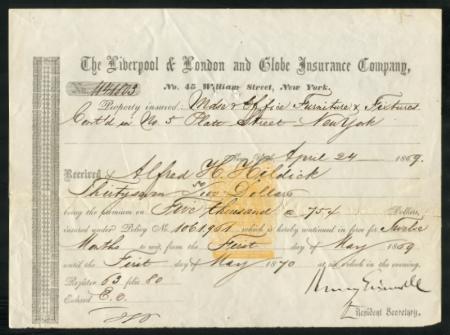 The Liverpool & London and Globe Insurance Company,
No. 45 William Street, New York.
Property insured, Mdse & Office Furniture & Fixtures
Cont'd in No 5 Platt Street New York
New York, April 24 1869.
Received of Alfred H. Hildick
50 Dollars
being the premium on Five thousand @ 75¢ Dollars,
insured under Policy No. 1061,961 which is hereby continued in force for Twelve
Months to wit, from the First day of May 1869
until the First day of May 1870 at o'clock in the evening.
Register 63 folio 80
Entered E.O.
Resident Secretary.